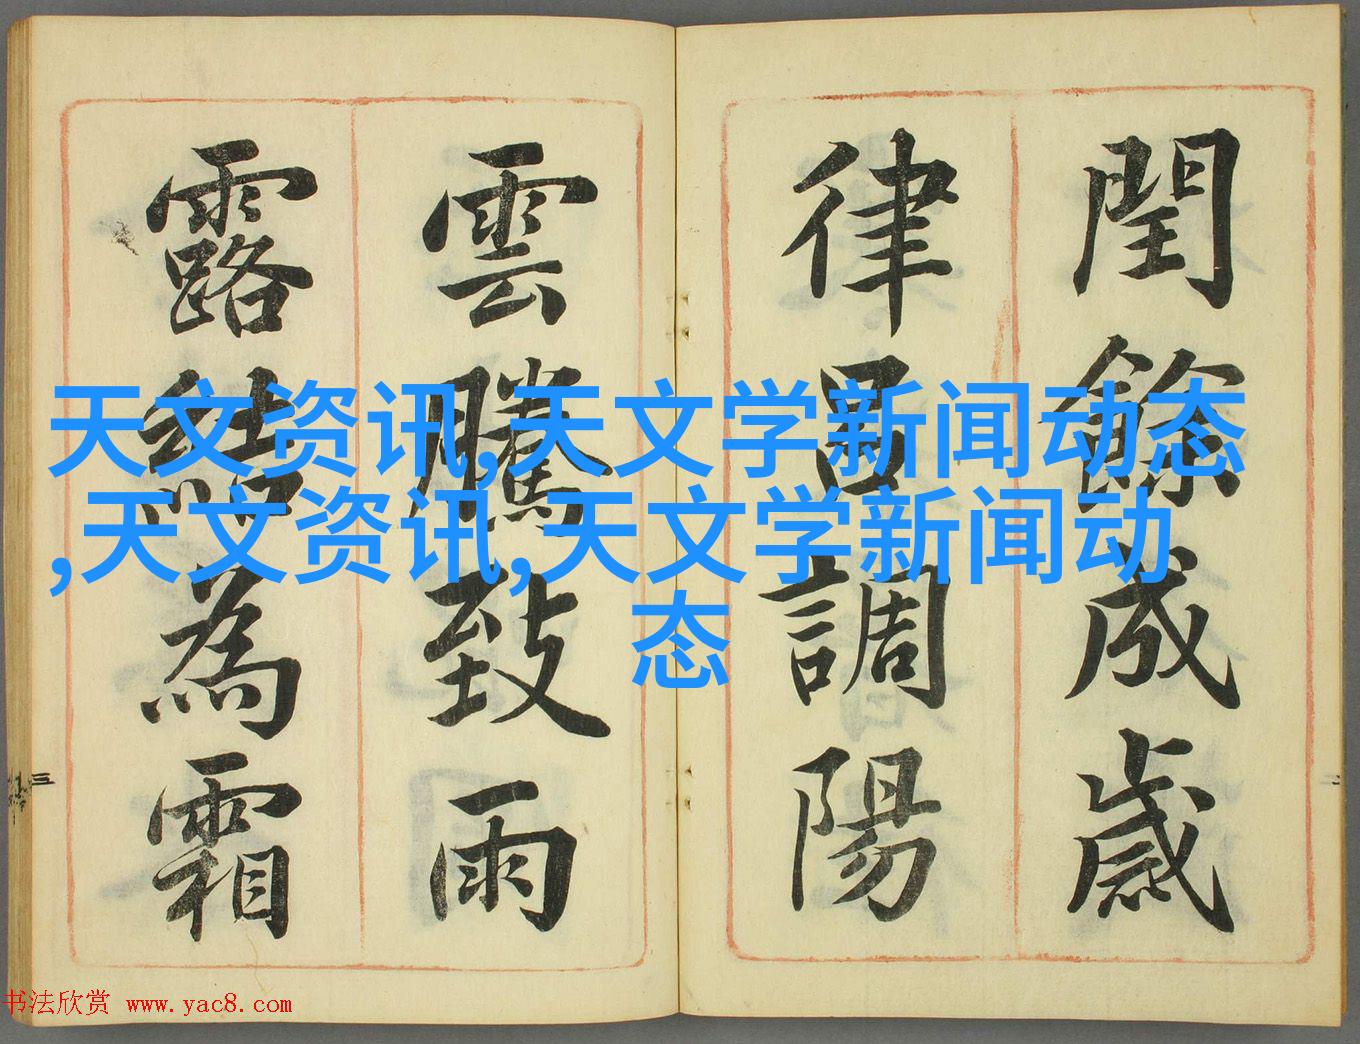 閏餘成歲
律呂調陽
雲騰致雨
露結為霜
天文资讯,天文学新闻动态
,天文资讯,天文学新闻动
态
三
二
书法欣赏 www.yac8.com